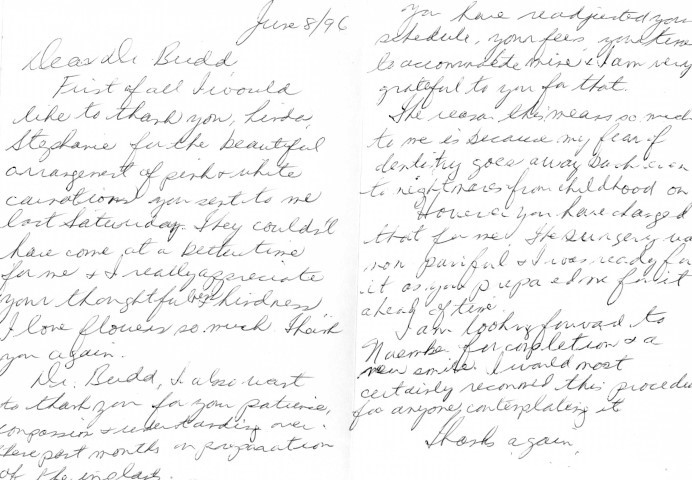 June 8/96
Dear Dr. Budd
First of all I would
like to thank you, Linda,
Stephanie for the beautiful
arrangement of pink & white
carnations you sent to me
last Saturday. They couldn't
have come at a better time
for me & I really appreciate
your thoughtfulness & kindness
I love flowers so much. Thank
you again.
Dr. Budd, I also want
to thank you for your patience,
compassion & understanding over
these past months in preparation
of the
You have readjusted your
schedule, your fees, your time
to accommodate mine & I am very
grateful to you for that.
The reason this means so much
to me is because my fear of
dentistry goes away back even
to nightmares from childhood on
However you have changed
that for me. The surgery was
non painful & I was ready for
it as you prepared me for it
ahead of time.
I am looking forward to
November for completion & a
new smile. I would most
certainly recommend this procedure
for anyone contemplating it
Thanks again,